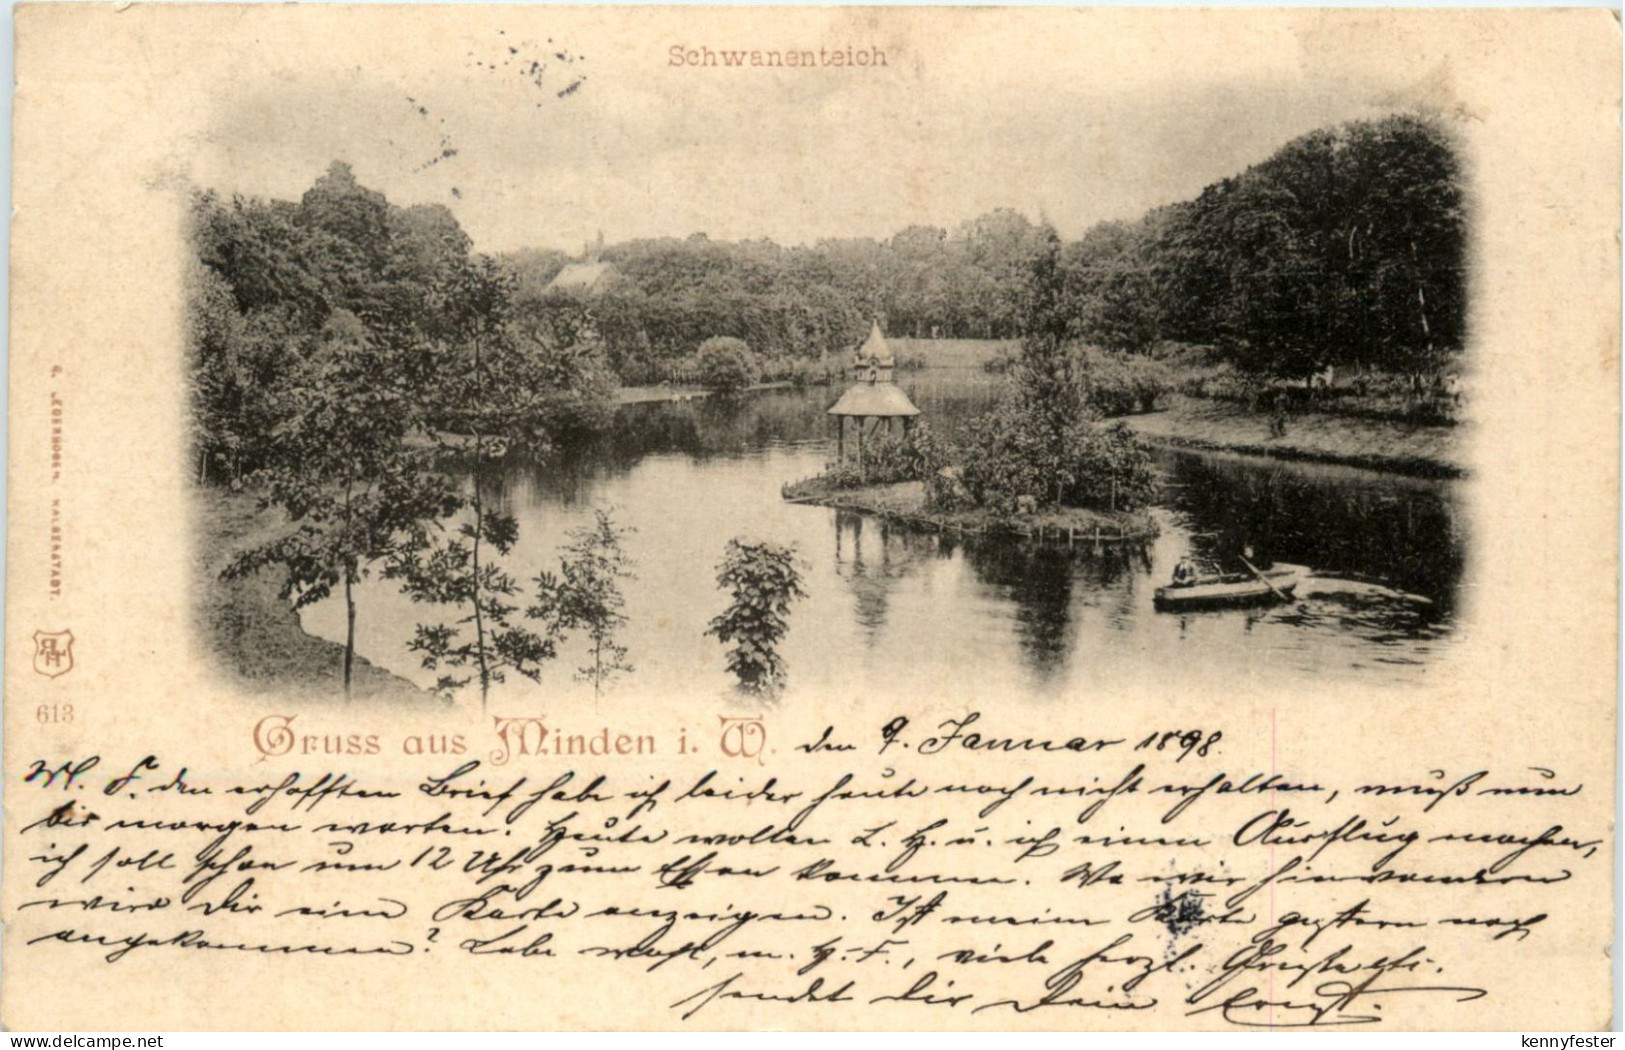 Schwanenteich
613
Gruss aus Minden i. W. den 9. Januar 1898.
M. F. den erhofften Brief habe ich leider heute noch nicht erhalten, muß nun
bis morgen warten. Heute wollen L. H. u. ich einen Ausflug machen,
ich soll schon um 12 Uhr zum Essen kommen. Wo wir hinwandern
wird Dir eine Karte anzeigen. Ist meine Karte gestern noch
angekommen? Lebe wohl, m. H. F., viele herzl. Grüße
sendet Dir Dein Ernst.
delcampe.net
kennyfester